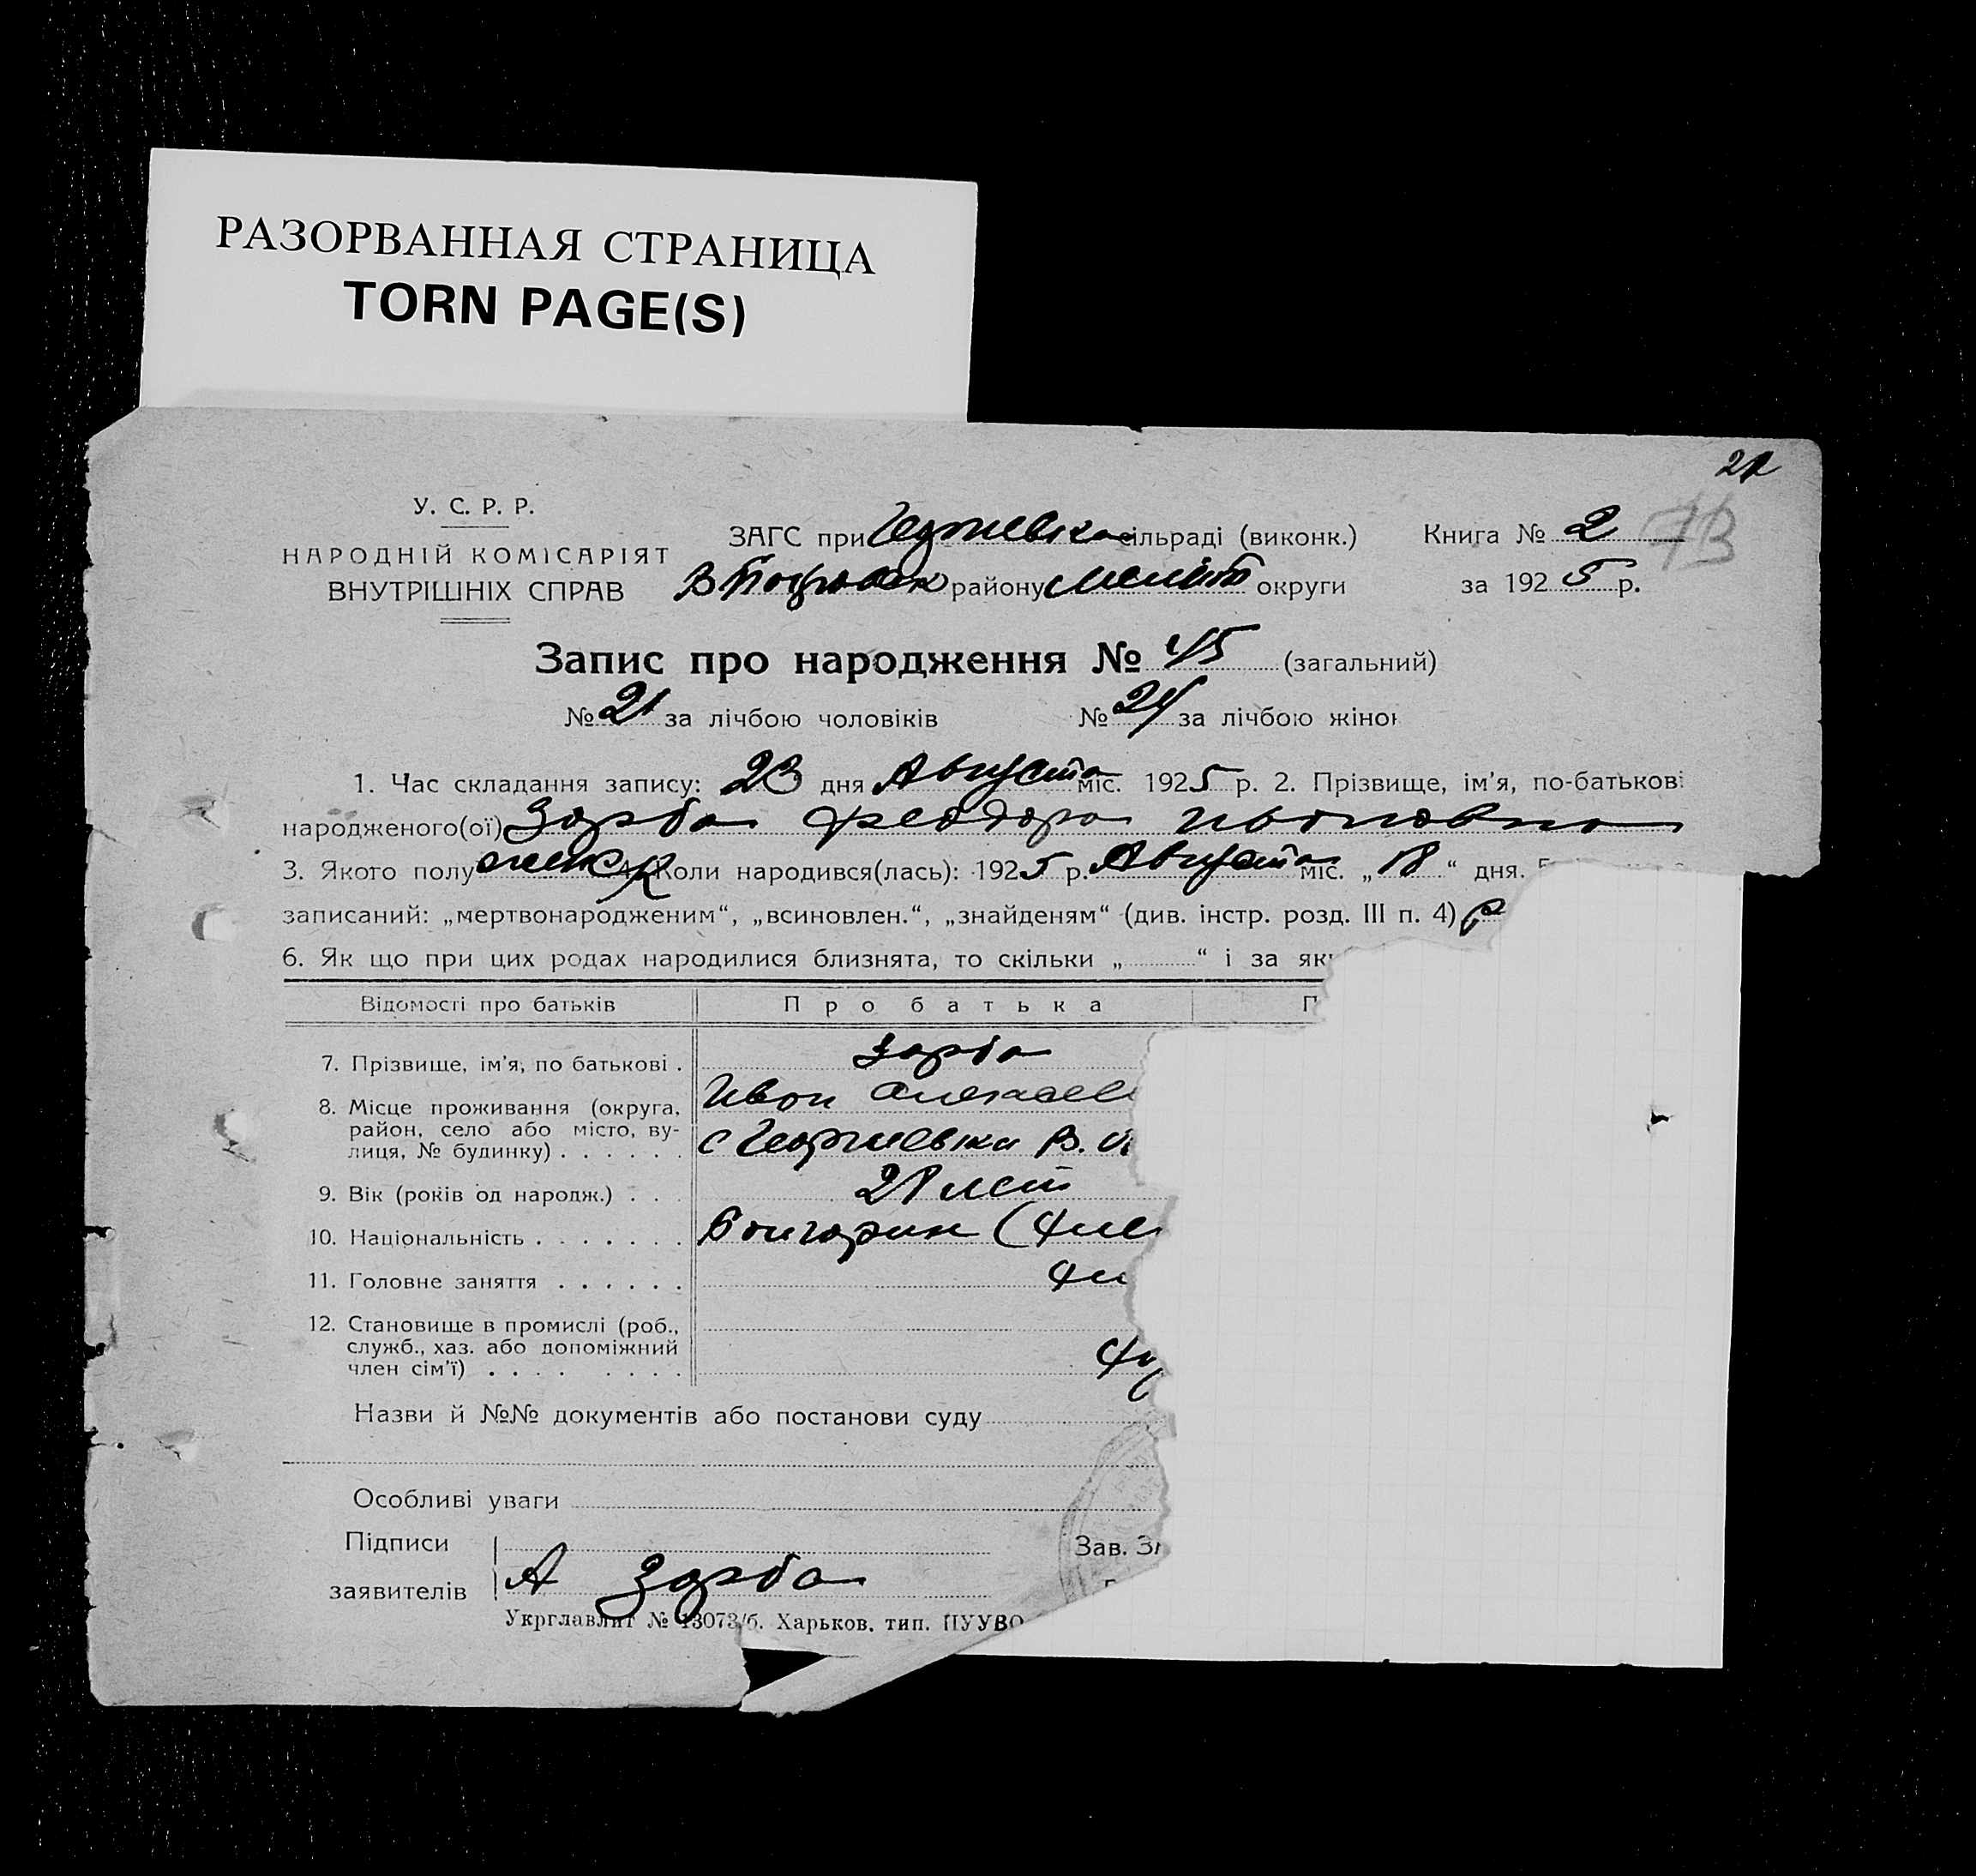 РАЗОРВАННАЯ СТРАНИЦА
TORN PAGE(S)
У. С. Р. Р.
НАРОДНІЙ КОМІСАРІЯТ
ВНУТРІШНІХ СПРАВ
ЗАГС при сільраді (виконк.)
району Меліт округи
Книга № 2
за 1925 р.
Запис про народження № 45 (загальний)
№ 21 за лічбою чоловіків № 24 за лічбою жінок
1. Час складання запису: 23 дня Августа міс. 1925 р. 2. Прізвище, ім'я, по-батькові
народженого(ої) Зорба Феодора Ивановна
3. Якого полу женск 4. Коли народився(лась): 1925 р. Августа міс. „18“ дня.
записаний: „мертвонародженим“, „всиновлен.“, „знайденям“ (див. інстр. розд. III п. 4)
6. Як що при цих родах народилися близнята, то скільки „ “ і за як
Відомості про батьків Про батька П
7. Прізвище, ім'я, по батькові . Зорба
Иван Алексее
8. Місце проживання (округа,
район, село або місто, ву-
лиця, № будинку) . . . . . . с Георгиевка В.
9. Вік (років од народж.) . . . 28 лет
10. Національність . . . . . . . Болгарин
11. Головне заняття . . . . . .
12. Становище в промислі (роб.,
служб., хаз. або допоміжний
член сім'ї) . . . . . . . .
Назви й №№ документів або постанови суду
Особливі уваги
Підписи
заявителів А Зорба
Зав. ЗА
Укрглавлит № 13073/б. Харьков, тип. ПУУВО